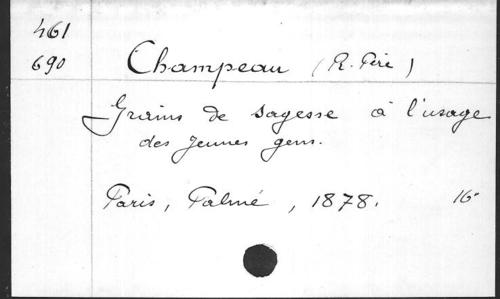 461
690
Champeau (R. Père)
Grains de sagesse à l'usage
des jeunes gens.
Paris, Palmé, 1878. 16°